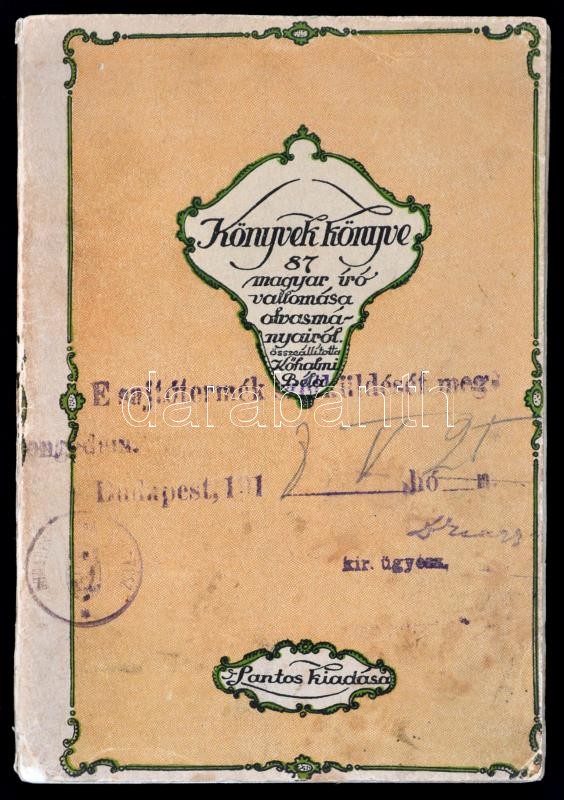 Könyvek könyve
87
magyar író
vallomása
olvasmá-
nyairól.
összeállította
Kőhalmi
Béla
E sajtótermék szétküldését meg-
Budapest, 191 8 V 25 hó n.
kir. ügyész.
Lantos kiadása
darabanth